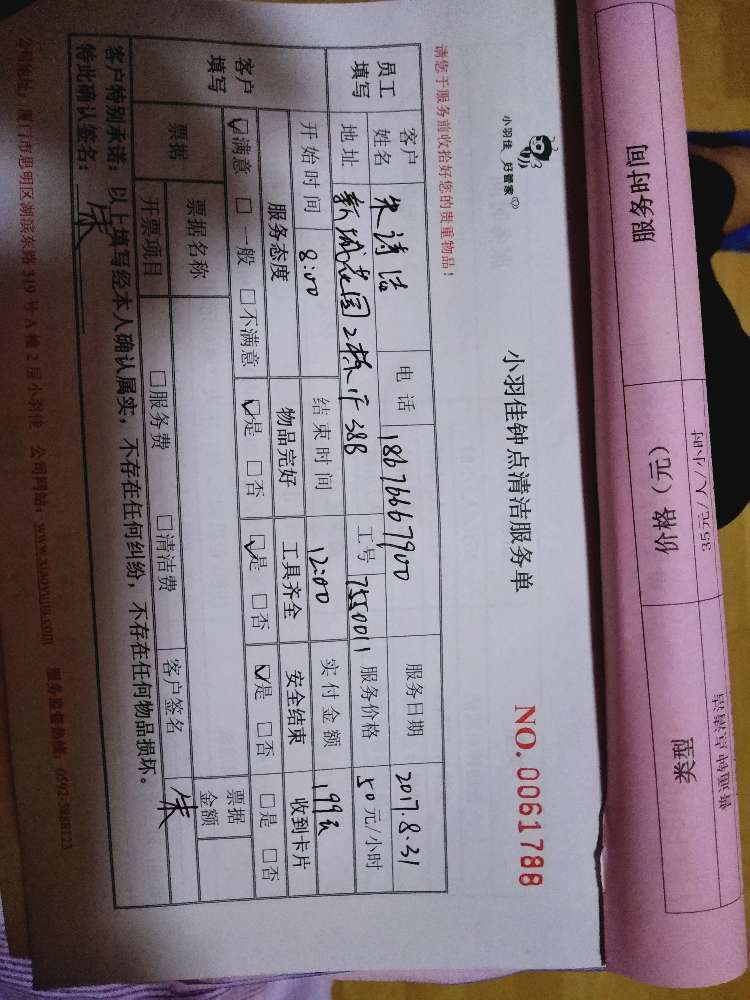 小羽佳 好管家
小羽佳钟点清洁服务单
NO. 0061788
请您于服务前收拾好您的贵重物品！
员工填写 客户姓名 朱诗洁 电话 18676667900 服务日期 2017.8.31
地址 新城花园2栋1F38B 工号 7550011 服务价格 50元/小时
开始时间 8:00 结束时间 12:00 实付金额 199元
客户填写 服务态度 物品完好 工具齐全 安全结束 收到卡片
☑满意 □一般 □不满意 ☑是 □否 ☑是 □否 ☑是 □否 □是 □否
票据 票据名称 票据金额
开票项目 □服务费 □清洁费 客户签名 朱
客户特别承诺：以上填写经本人确认属实，不存在任何纠纷，不存在任何物品损坏。
特此确认签名：朱
公司地址：厦门市思明区湖滨东路319号A幢2层小羽佳 公司网站：www.xiaoyujia.com 服务监督热线：0592-5988123
服务时间 价格（元） 类型
35元/人/小时 普通钟点清洁